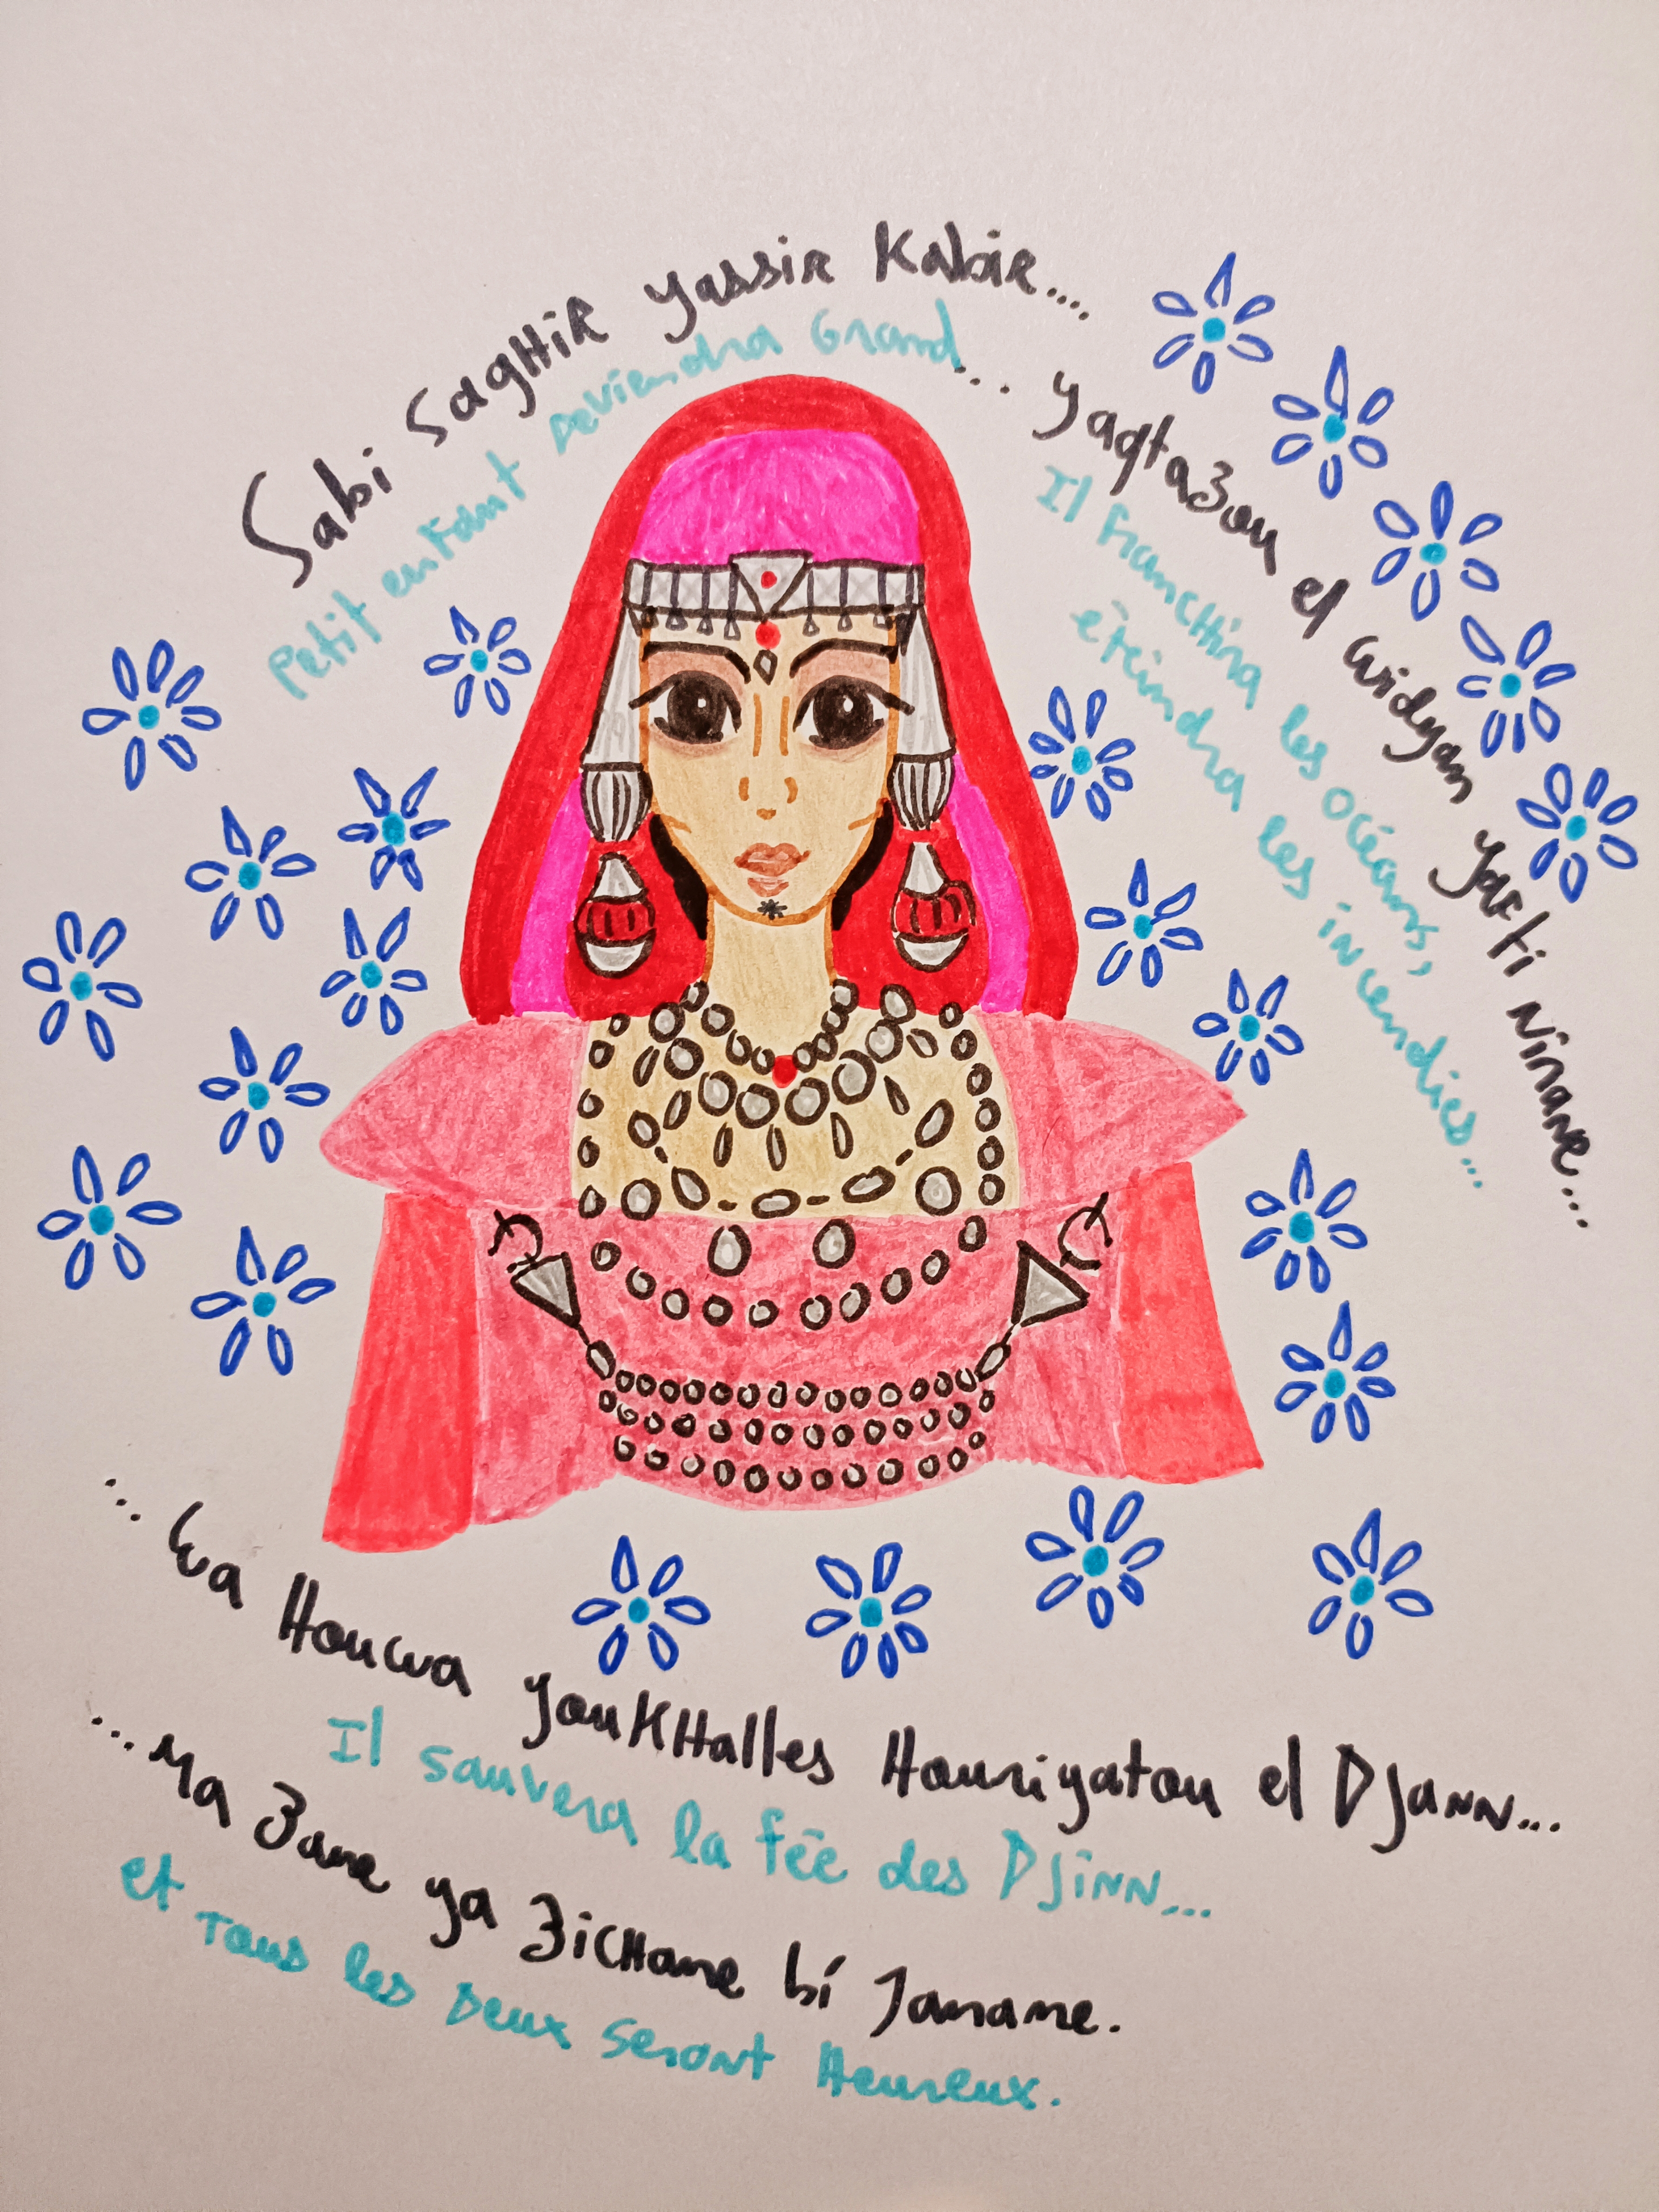 Sabi SagHiR yassiR Kabir....
Petit enfant Deviendra Grand...
yaqta3ou el widyan yafti Nirane...
Il francHira les océans,
éteindra les incendies...
...wa Houwa youKHalles Houriyatou el DJaNN...
Il sauvera la fée des DJiNN...
...Ma 3ane ya 3icHane bi Jamane.
et Tous les Deux seront Heureux.